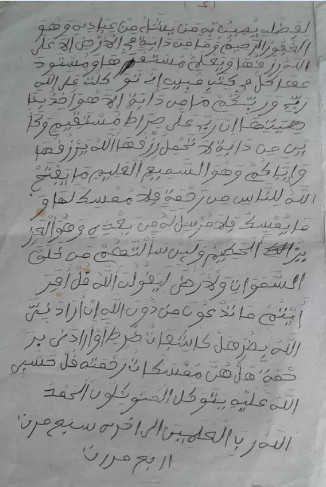 لفضله يصيب به من يشاء من عباده وهو
الغفور الرحيم وما من دابة في الارض الا على
الله رزقها ويعلم مستقرها ومستود
عها كل في كتب مبين اني توكلت على الله
ربي وربكم ما من دابة الا هو اخذ بنا
صيتها ان ربي على صراط مستقيم وكا
ين من دابة لا تحمل رزقها الله يرزقها
واياكم وهو السميع العليم ما يفتح
الله للناس من رحمة فلا ممسك لها و
ما يمسك فلا مرسل له من بعده وهو العز
يز الحكيم ولين سالتهم من خلق
السموات والارض ليقولن الله قل افر
ايتم ما تدعون من دون الله ان اراد ني
الله بضر هل كاشفات ضره او ارادني بر
حمة هل هن ممسكات رحمته قل حسبي
الله عليه يتوكل المتوكلون الحمد
الله رب العلمين الى اخره سبع مرت
اربع مررت